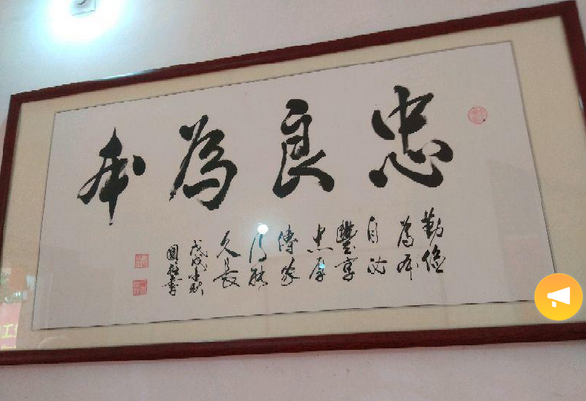 忠良為本
勤儉
為本
自必
豐亨
忠厚
傳家
乃能
久長
戊戌